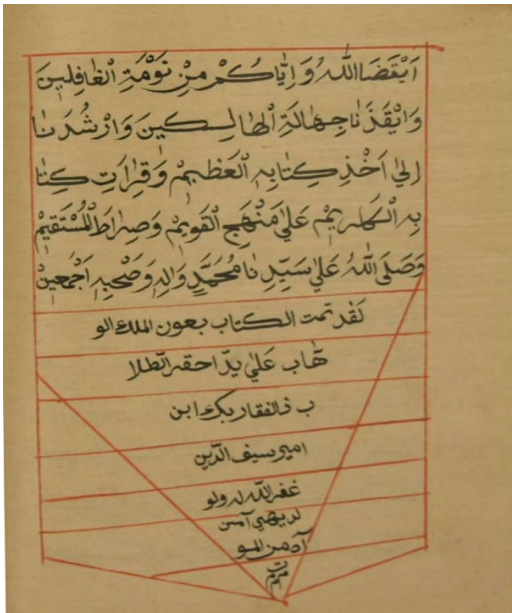 اَيْقَضَنَا اللّٰهُ وَاِيَّاكُمْ مِنْ نَوْمَةِ الْغَافِلِينَ
وَاَيْقَذَنَا جِهَالَةِ الْهَالِكِينَ وَارْشُدَنَا
اِلٰى اَخْذِ كِتَابِهِ الْعَظِيمْ وَقِرَاتِ كِتَا
بِهِ الْكَرِيمْ عَلٰى مَنْهَجِ الْقَوِيمْ وَصِرَاطِ الْمُسْتَقِيمْ
وَصَلَى اللّٰهُ عَلٰى سَيِّدِنَا مُحَمَّدٍ وَاٰلِهِ وَصَحْبِهِ اَجْمَعِينْ
لَقَدْ تمت الكتاب بعون الملك الو
هّاب عَلٰى يدّ احقر الطّلا
ب ذالفقار بك ابن
امير سيف الدّين
غفر اللّٰه له ولو
لديهى آمين